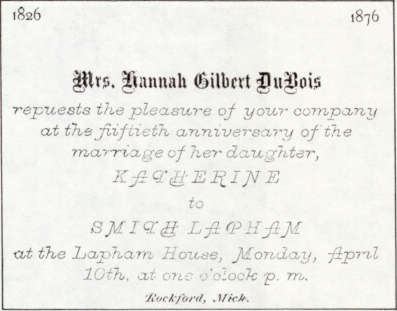 1826 1876
Mrs. Hannah Gilbert DuBois
repuests the pleasure of your company
at the fiiftieth anniversary of the
marriage of her daughter,
KATHERINE
to
SMITH LAPHAM
at the Lapham House, Monday, April
10th, at one o'clock p. m.
Rockford, Mich.